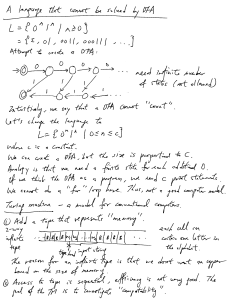 A language that cannot be solved by DFA
L = { 0ⁿ1ⁿ | n≥0 }
= { ε, 01, 0011, 000111, ... }
Attempt to create a DFA:
need infinite number
of states (not allowed)
Intuitively, we say that a DFA cannot "count".
Let's change the language to
L = { 0ⁿ1ⁿ | 0≤n≤c }
where c is a constant.
We can create a DFA, but the size is proportional to c.
Analogy is that we need a finite state for each additional 0.
If we think the DFA as a program, we need c print statements.
We cannot do a "for" loop here. Thus, not a good computer model.
Turing machine - a model for conventional computers.
① Add a tape that represents "memory".
2-way
infinite
tape
each cell on
contains one letter in
the alphabet.
The reason for an infinite tape is that we don't want an upper
bound on the size of memory.
② Access to tape is sequential, efficiency is not very good. The
goal of the TM is to investigate "computability".